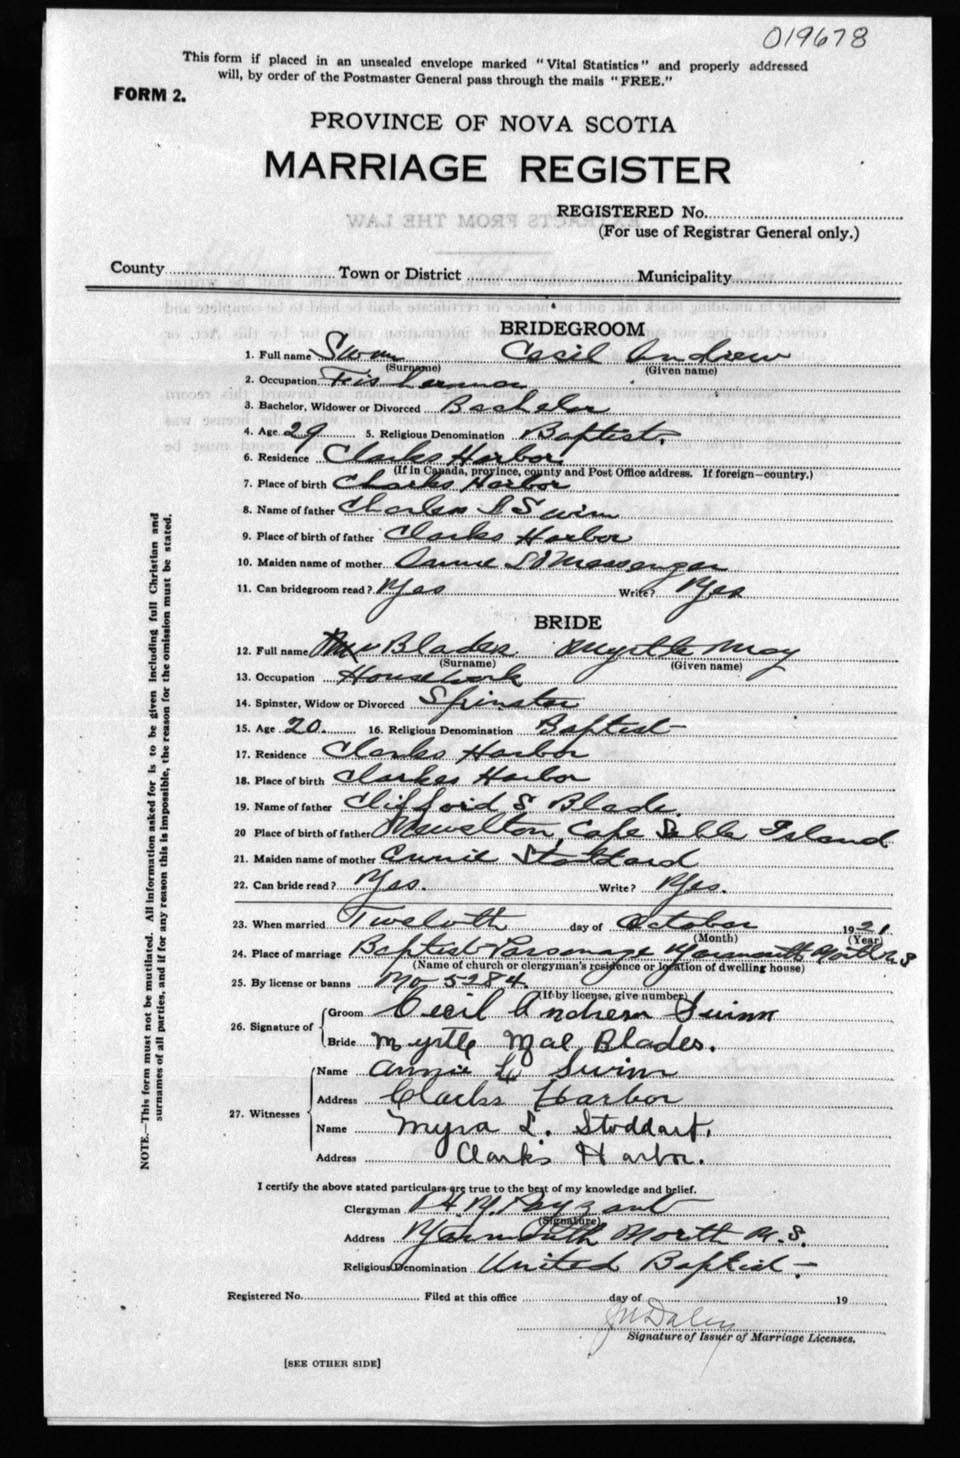 019678
This form if placed in an unsealed envelope marked "Vital Statistics" and properly addressed
will, by order of the Postmaster General pass through the mails "FREE."
FORM 2.
PROVINCE OF NOVA SCOTIA
MARRIAGE REGISTER
REGISTERED No.
(For use of Registrar General only.)
County Town or District Municipality
BRIDEGROOM
1. Full name Swim Cecil Andrew
(Surname) (Given name)
2. Occupation Fisherman
3. Bachelor, Widower or Divorced Bachelor
4. Age 29 5. Religious Denomination Baptist.
6. Residence Clarks Harbor,
(If in Canada, province, county and Post Office address. If foreign—country.)
7. Place of birth Clarks Harbor
8. Name of father Charles S Swim
9. Place of birth of father Clarks Harbor
10. Maiden name of mother Annie Messenger
11. Can bridegroom read? Yes Write? Yes
BRIDE
12. Full name Blades Myrtle May
(Surname) (Given name)
13. Occupation Housework
14. Spinster, Widow or Divorced Spinster
15. Age 20 16. Religious Denomination Baptist
17. Residence Clarks Harbor
18. Place of birth Clarkes Harbor
19. Name of father Clifford S Blade
20 Place of birth of father Newelton, Cape Sable Island
21. Maiden name of mother Annie Stoddard
22. Can bride read? Yes. Write? Yes.
23. When married Twelvth day of October 1921
(Month) (Year)
24. Place of marriage Baptist Parsonage Yarmouth North N.S
(Name of church or clergyman's residence or location of dwelling house)
25. By license or banns No 5284.
(If by license, give number)
26. Signature of Groom Cecil Andrew Swim
Bride Myrtle Mae Blades.
27. Witnesses Name Annie L Swim
Address Clarks Harbor
Name Myra L. Stoddart.
Address Clark's Harbor.
I certify the above stated particulars are true to the best of my knowledge and belief.
Clergyman Payzant
(Signature)
Address Yarmouth North N.S.
Religious Denomination United Baptist
Registered No. Filed at this office day of 19
Daley
Signature of Issuer of Marriage Licenses.
[SEE OTHER SIDE]
NOTE.—This form must not be mutilated. All information asked for is to be given including full Christian and
surnames of all parties, and if for any reason this is impossible, the reason for the omission must be stated.
EXTRACTS FROM THE LAW